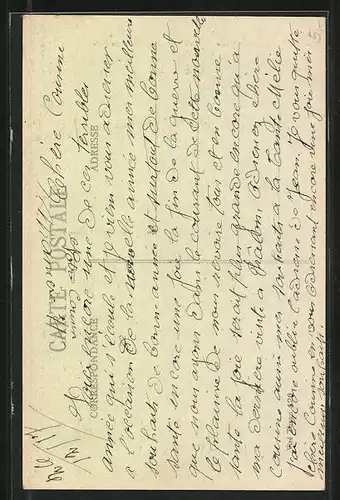 CARTE POSTALE
CORRESPONDANCE
ADRESSE
Chère Cousine
Voilà encore une de ces terribles
année qui s'écoule et je viens vous adresser
a l'occasion de la nouvelle année mes meilleurs
souhaits de bonne année et surtout de bonne
santé encore une fois la fin de la guerre et
que nous ayons dans le courant de cette nouvelle
le plaisir de nous revoir tous et en bonne
santé la joie serait plus grande encore qu'a
ma dernière visite a
cousine aussi mes souhaits a la tante Mélie
sans oublier de Jean. Je vous quitte
chère Cousine en vous encore une fois mes
meilleurs souhaits